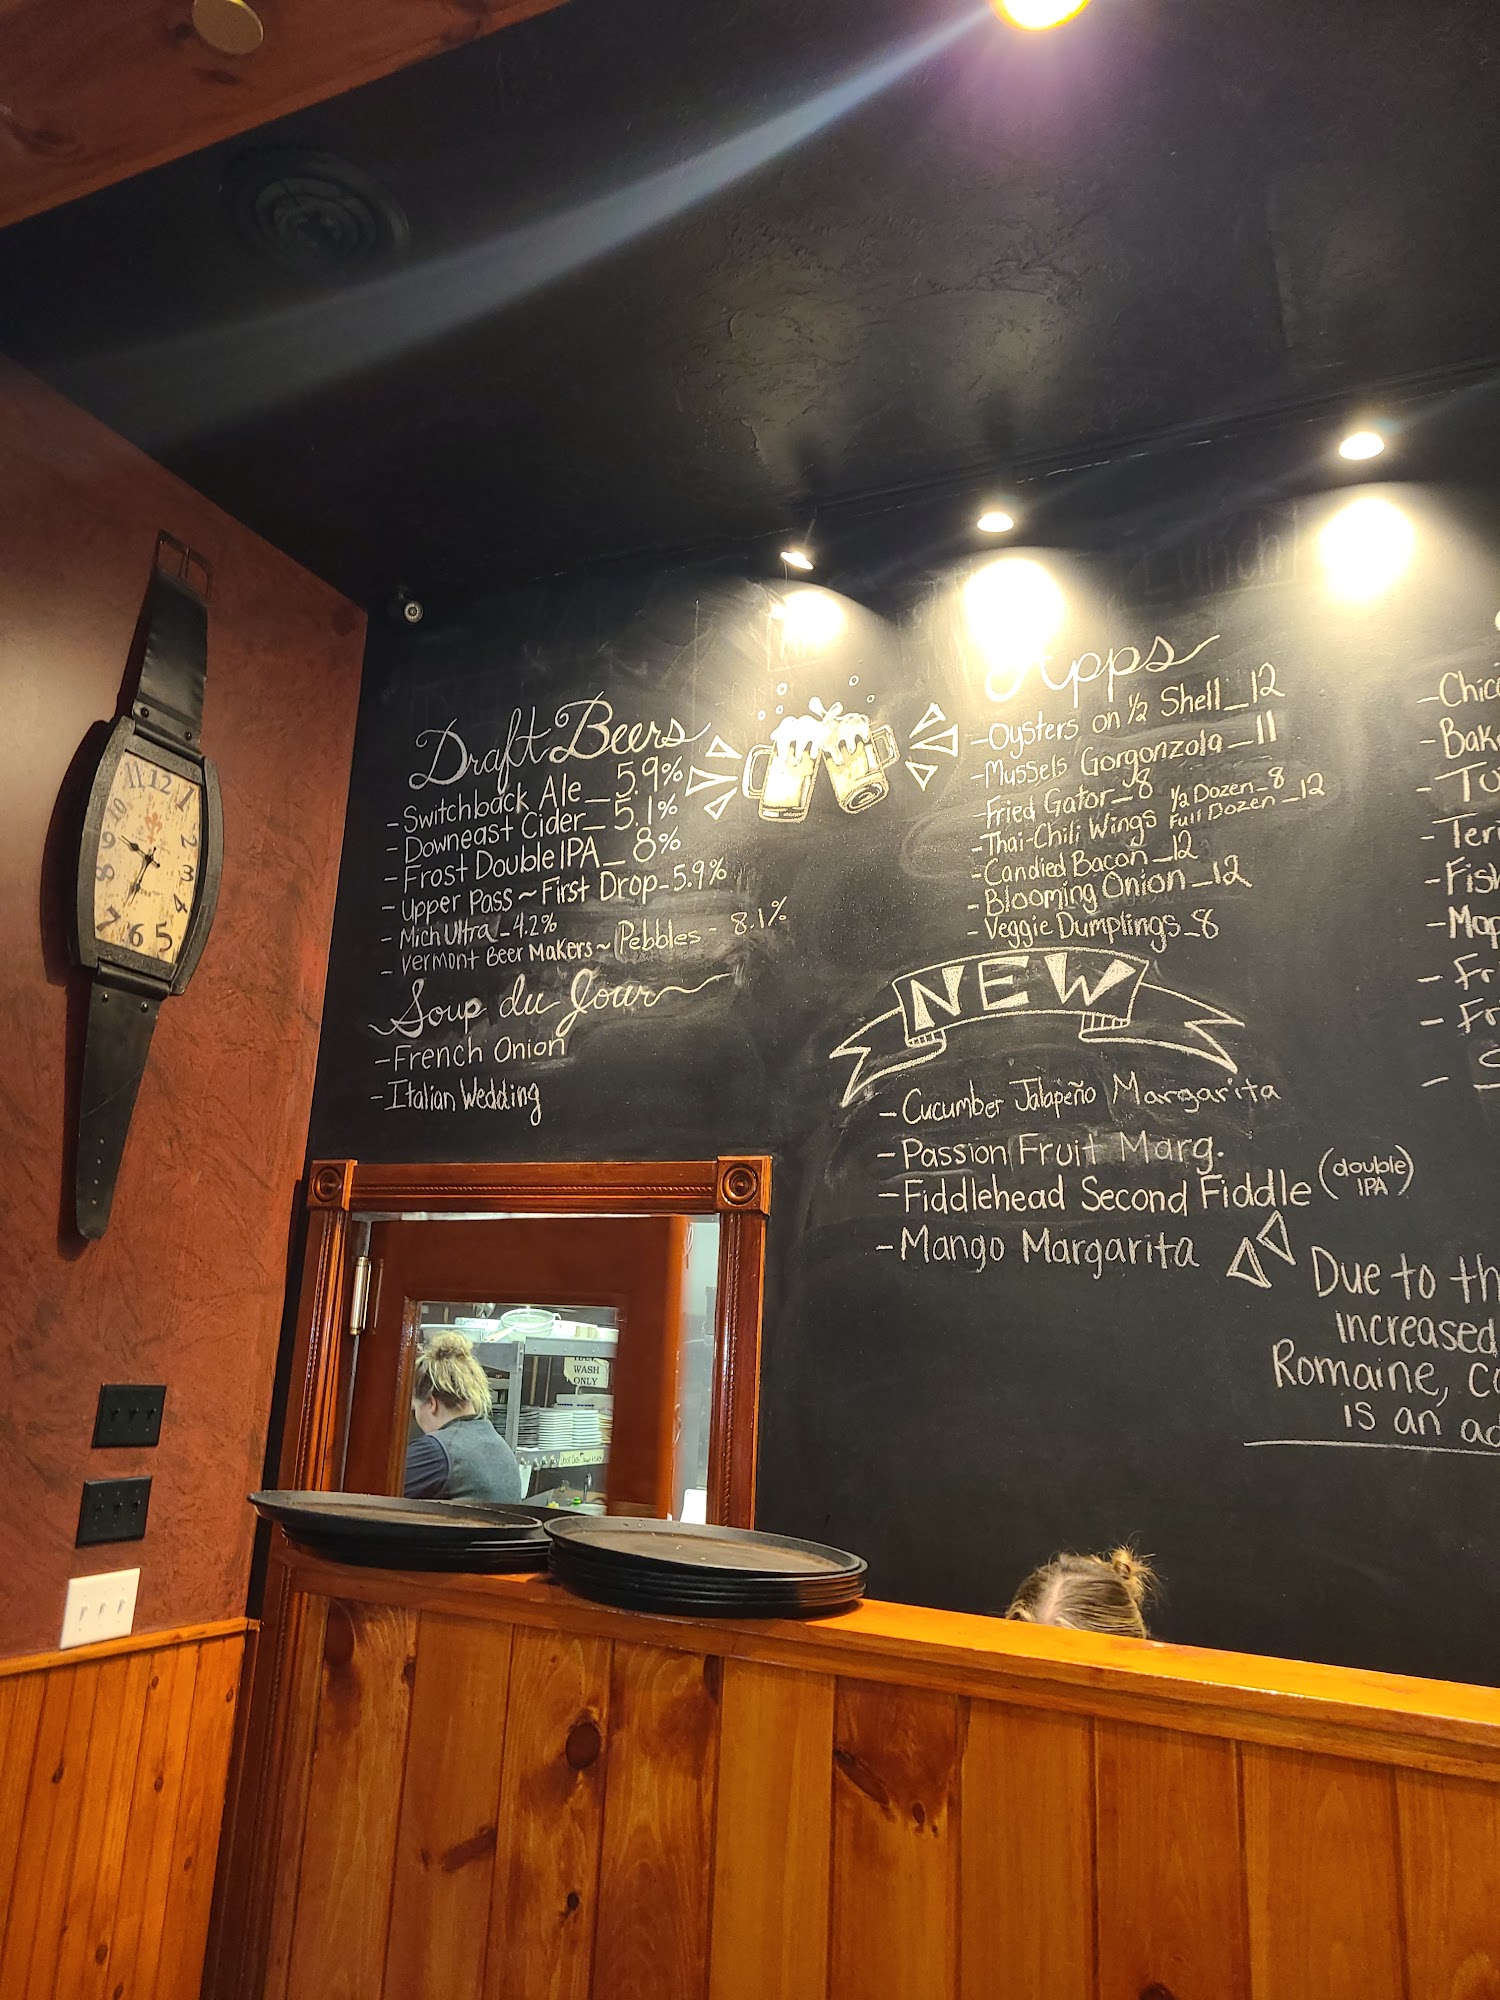 Draft Beers
- Switchback Ale _ 5.9%
- Downeast Cider _ 5.1%
- Frost Double IPA _ 8%
- Upper Pass ~ First Drop - 5.9%
- Mich Ultra - 4.2%
- Vermont Beer Makers ~ Pebbles - 8.1%
Soup du Jour
- French Onion
- Italian Wedding
Apps
- Oysters on 1/2 Shell _ 12
- Mussels Gorgonzola _ 11
- Fried Gator _ 8
- Thai-Chili Wings 1/2 Dozen _ 8
Full Dozen _ 12
- Candied Bacon _ 12
- Blooming Onion _ 12
- Veggie Dumplings _ 8
NEW
- Cucumber Jalapeño Margarita
- Passion Fruit Marg.
- Fiddlehead Second Fiddle (double IPA)
- Mango Margarita
Due to th
increased
Romaine, c
is an ad
- Chic
- Bak
- Te
- Fis
- Map
- Fr
- Fr
11 12 1
10 2
9 3
8 4
7 6 5
WASH
ONLY